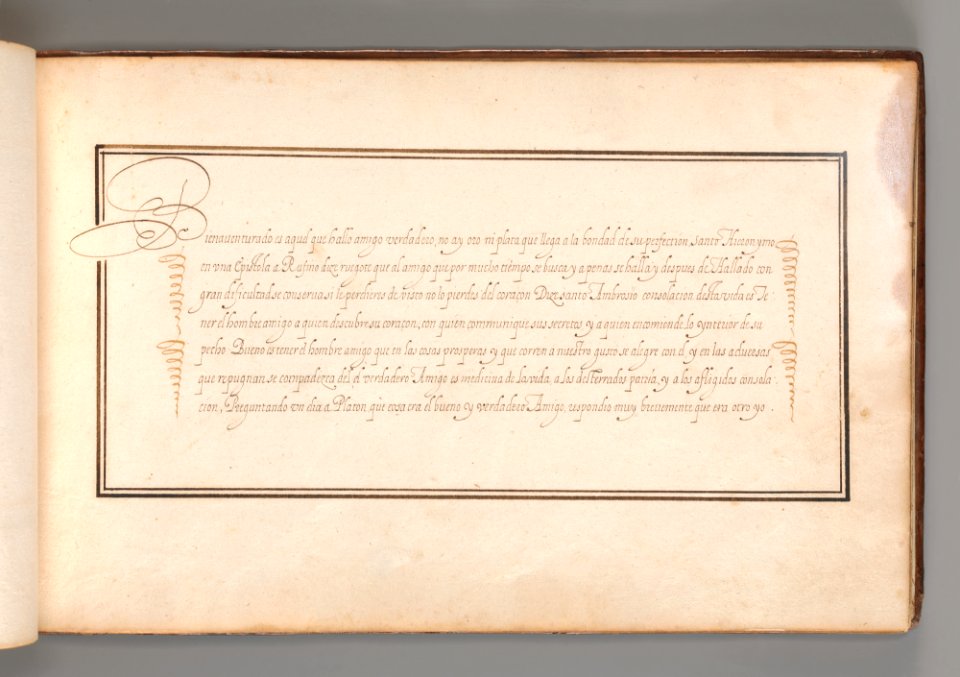 Bienauenturado es aquel que hallo amigo verdadero, no ay oro ni plata que llega a la bondad de su perfection, santo Hieronymo
en vna Epistola a Rufino dize ruegote que al amigo que por mucho tiempo se busca, y apenas se halla y despues de Hallado con
gran dificultad se conserua si le perdieres de visto no lo pierdas del coraçon Dize santo Ambrosio consolacion desta vida es Te
ner el hombre amigo a quien descubre su coraçon, con quien communique sus secretos y a quien encomiende lo ynterior de su
pecho Bueno es tener el hombre amigo que en las cosas prosperas y que corren a nuestro gusto se alegre con el, y en las aduersas
que repugnan se compadezca del, el verdadero Amigo es medicina de la vida, a los desterrados patria, y a los afligidos consola
cion, Preguntando vn dia a Platon que cosa era el bueno y verdadero Amigo, respondio muy breuemente que era otro yo .